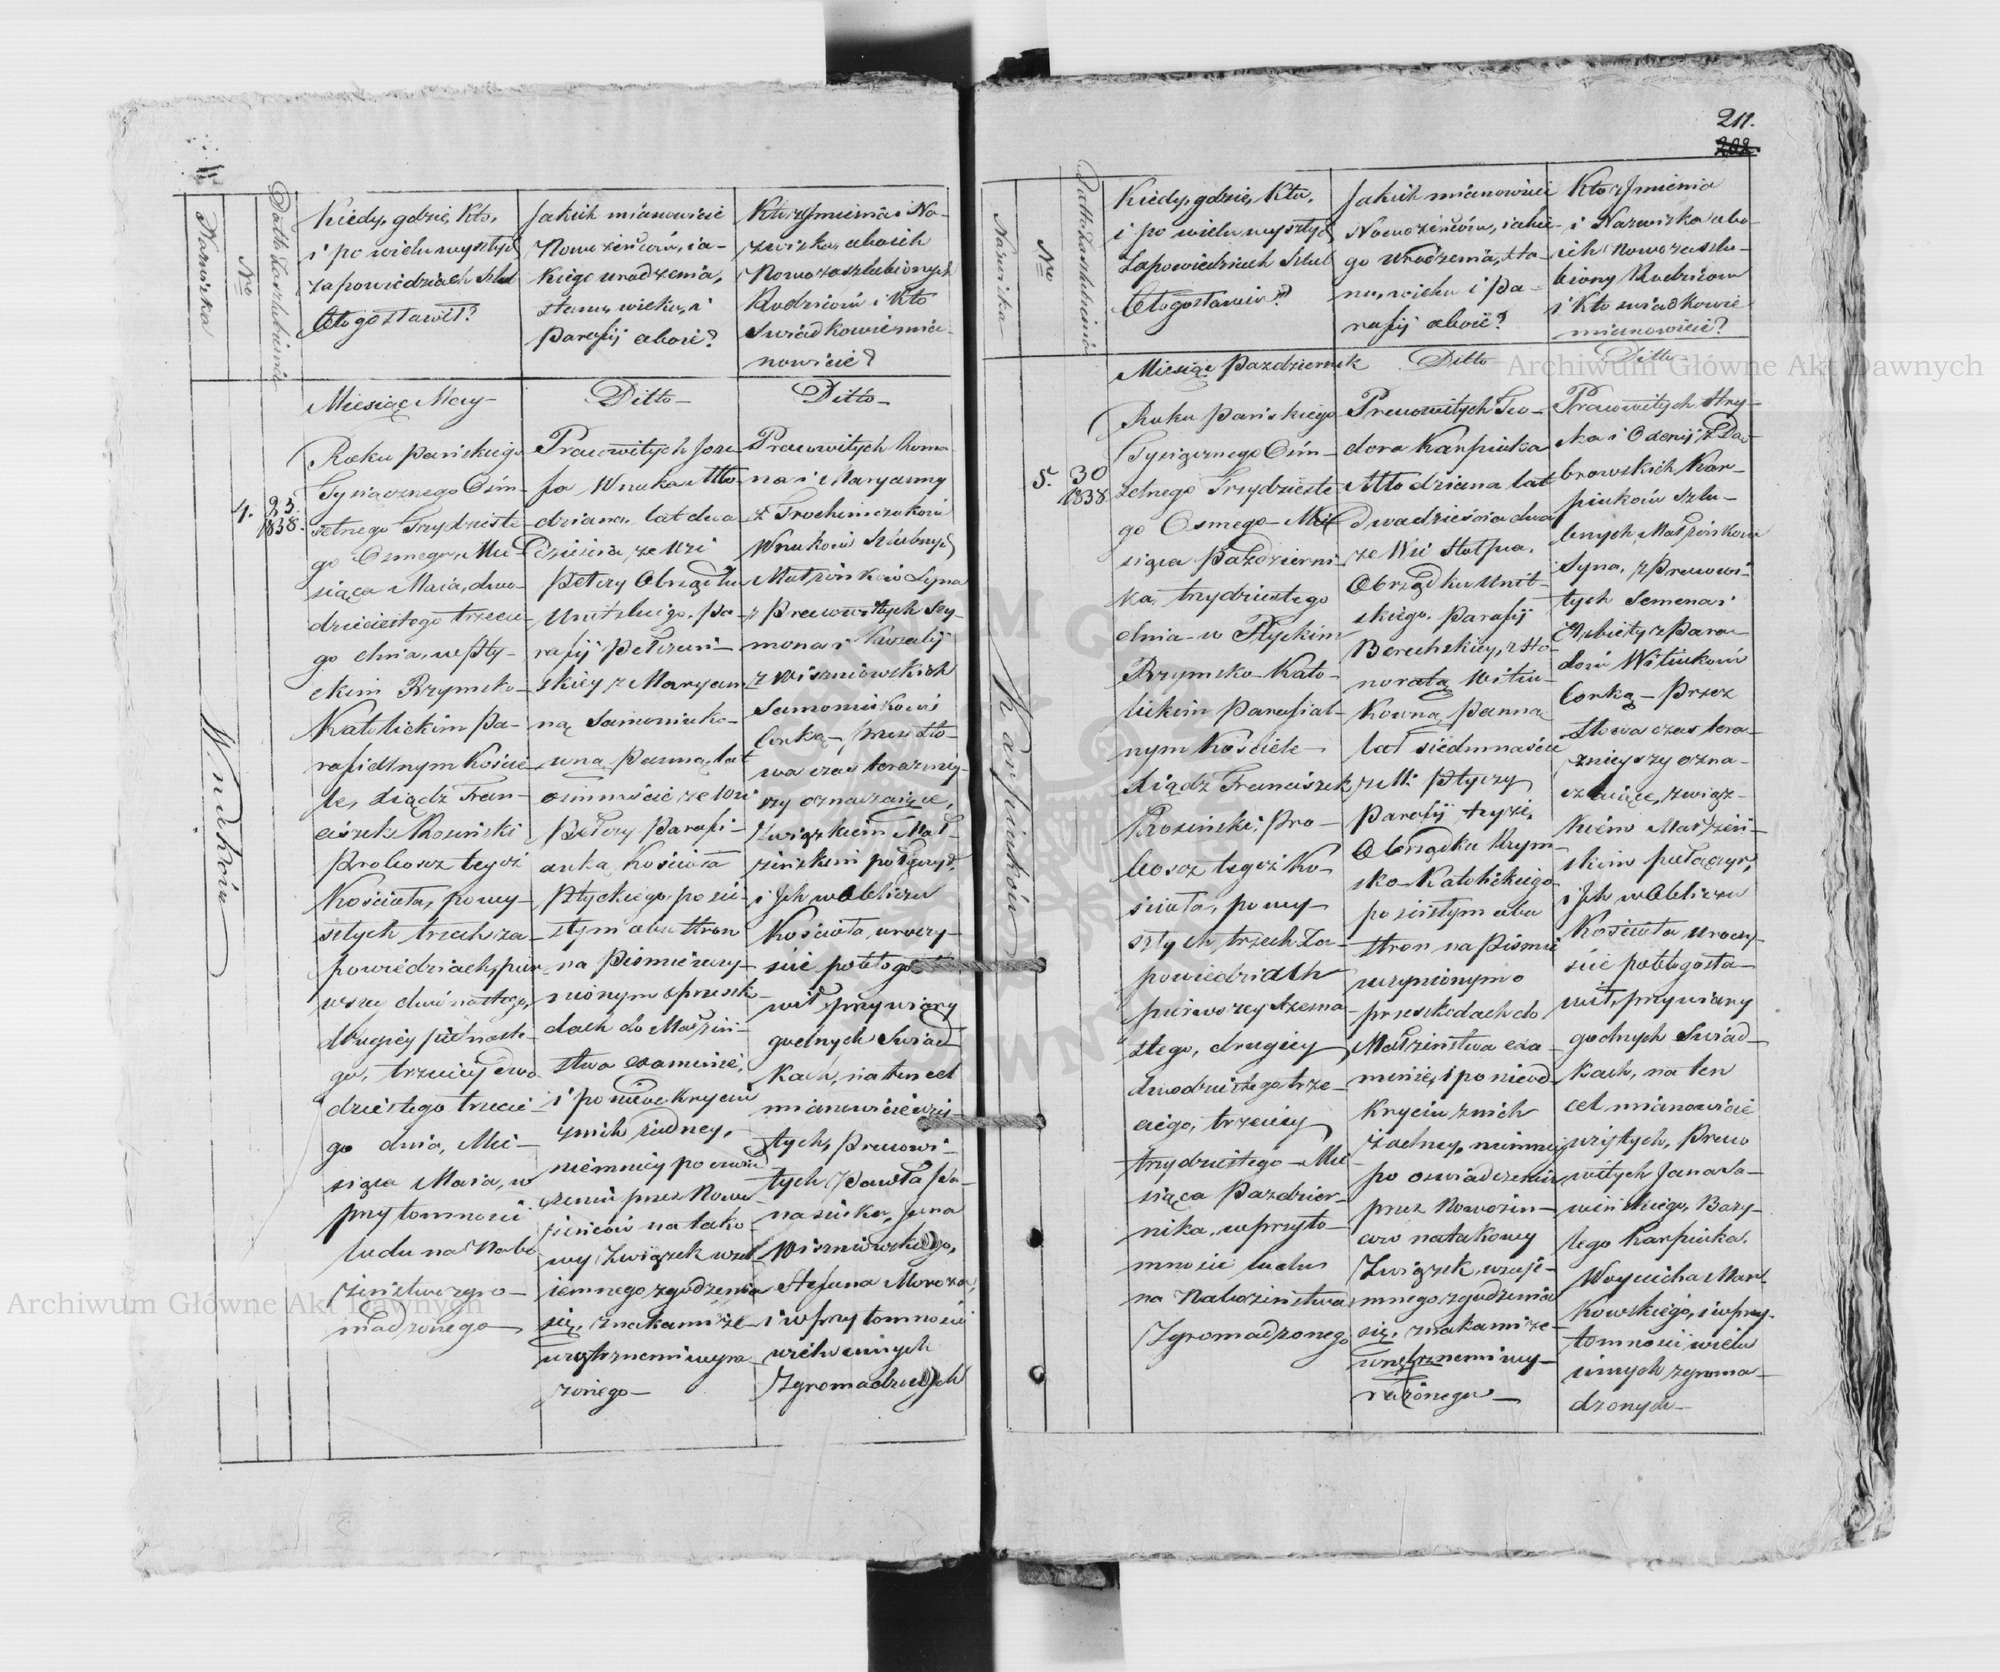 211.
202.
Nazwiska
Nro
Data Zaszlubienia
Kiedy, gdzie, Kto,
i po wielu wyszłych
zapowiedziach Szlub
błogosławił?
Jakich mianowicie
Nowożeńców, ia-
kiego urodzenia,
stanu, wieku, i
Parafij oboie?
Kto z Jmienia i Na-
zwiska, oboich
Nowozaszlubionych
Rodziców i Kto
Swiadkowie mia-
nowicie?
Miesiąc May
Ditto
Ditto
Wnuków
4.
23.
1838.
Roku Pańskiego
Tysiącznego Ośm-
setnego Trzydzieste-
go Osmego, Mie-
siąca Maia, dwu-
dziestego trzecie-
go dnia, w Pty-
ckim Rzymsko-
Katolickim Pa-
rafialnym Koście-
le, Xiądz Fran-
ciszek Rosiński
Proboszcz tegoż
Kościoła, po wy-
szłych trzech za-
powiedziach, pier-
wszey dwónastego,
drugiey piętnaste-
go, trzeciey dwu-
dziestego trzecie-
go dnia, Mie-
siąca Maia, w
przytomności
ludu na Nabo-
żeństwo zgro-
madzonego
Pracowitych Joze-
fa Wnuka Mło-
dziana, lat dwa-
dzieścia, ze Wsi
Pełczy Obrządku
Unitskiego, Pa-
rafij Pełczań-
skiey z Maryan-
ną Samoniuko-
wną Panną, lat
osimnaście ze Wsi
Pełczy Parafi-
anką Kościoła
Ptyckiego, po ści-
słym obu stron
na Piśmie uczy-
nionym o przeszko-
dach do Małżeń-
stwa examinie,
i po nieodkryciu
z nich żadney,
niemniey po oświad-
czeniu przez Nowo-
żeńców na tako-
wy Związek wza-
iemnego zgodzenia
się, znakami ze-
wnętrznemi wyra-
żonego
Pracowitych Roma-
na i Maryanny
z Trochimczuków
Wnuków Szlubnych
Małżonków Syna
z Pracowitych Szy-
mona i Rozalij
z Wiszniowskich
Samoniuków
Corką, przez sło-
wa czas teraźniey-
szy oznaczaiące,
Związkiem Mał-
żeńskim połączył,
i Jch w Obliczu
Kościoła, uroczy-
ście pobłogosła-
wił, przy wiary
godnych Swiad-
kach, na ten cel
mianowicie wzię-
tych, Pracowi-
tych Pawła Pa-
nasiuka, Jana
Wiszniowskiego,
Stefana Moroza,
i w przytomności
wielu innych
Zgromadzonych
Nazwiska
Nro
Data Zaszlubienia
Kiedy, gdzie, Kto,
i po wielu wyszłych
Zapowiedziach Szlub
błogosławił?
Jakich mianowicie
Nowożeńców, iakie-
go urodzenia, sta-
nu, wieku i Pa-
rafij oboie?
Kto z Jmienia
i Nazwiska obo-
ich Nowozaszlu-
bionych Rodziców
i Kto swiadkowie
mianowicie?
Miesiąc Pazdziernik
Ditto
Ditto
Karpiuków
5.
30
1838
Roku Pańskiego
Tysiącznego Ośm-
setnego Trzydzieste-
go Osmego Mie-
siąca Październi-
ka, trzydziestego
dnia w Ptyckim
Rzymsko-Kato-
lickim Parafial-
nym Kościele
Xiądz Franciszek
Rosiński, Pro-
boszcz tegoż Ko-
ścioła, po wy-
szłych, trzech Za-
powiedziach
pierwszey szesna-
stego, drugiey
dwadziestego trze-
ciego, trzeciey
trzydziestego Mie-
siąca Pazdzier-
nika, w przyto-
mności ludu
na Nabożeństwo
Zgromadzonego
Pracowitych Teo-
dora Karpiuka
Młodziana lat
dwadzieścia dwa
ze Wsi Stołpca,
Obrządku Unit-
skiego, Parafij
Bereskiey, z Ho-
noratą Witiu-
kówną Panną
lat siedmnaście
z M: Ptyczy
Parafij teyże,
Obrządku Rzym-
sko-Katolickiego
po ścisłym obu
stron na Piśmie
uczynionym o
przeszkodach do
Małżeństwa exa-
minie, i po nieod-
kryciu z nich
żadney, niemniey
po oświadczeniu
przez Nowożeń-
ców na takowy
Związek, wzaje-
mnego zgodzenia
się, znakami ze-
wnętrznemi wy-
rażonego
Pracowitych Hry-
ka i Xsenij z Dą-
browskich Kar-
piuków Szlu-
bnych Małżonków
Syna, z Pracowi-
tych Semena i
Elżbiety z Para-
dów Witiuków
Corką przez
słowa czas tera-
znieyszy ozna-
czaiące, związ-
kiem Małżeń-
skim połączył,
i Jch w Obliczu
Kościoła uroczy-
ście pobłogosła-
wił, przy wiary
godnych Swiad-
kach, na ten
cel mianowicie
wziętych, Praco-
witych Jana Sa-
wińskiego, Bazy-
lego Karpiuka,
Woyciecha Mar-
kowskiego, i w przy-
tomności wielu
innych zgroma-
dzonych
Archiwum Główne Akt Dawnych
Archiwum Główne Akt Dawnych